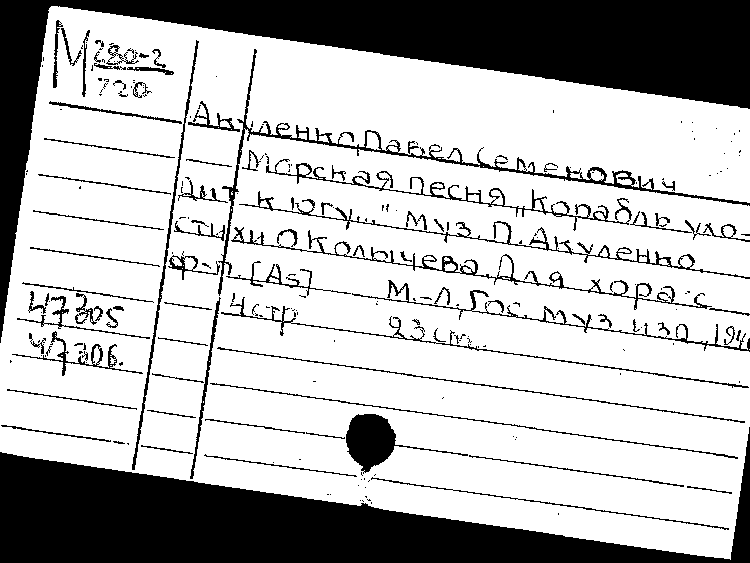 М 280-2
720
Акуленко, Павел Семенович
Морская песня „Корабль ухо-
дит к югу..." муз. П. Акуленко.
стихи О Колычева. Для хора с
ф-п. [As] М.-Л., Гос. муз. изд.,
47305 4 стр 23 см.
47306.